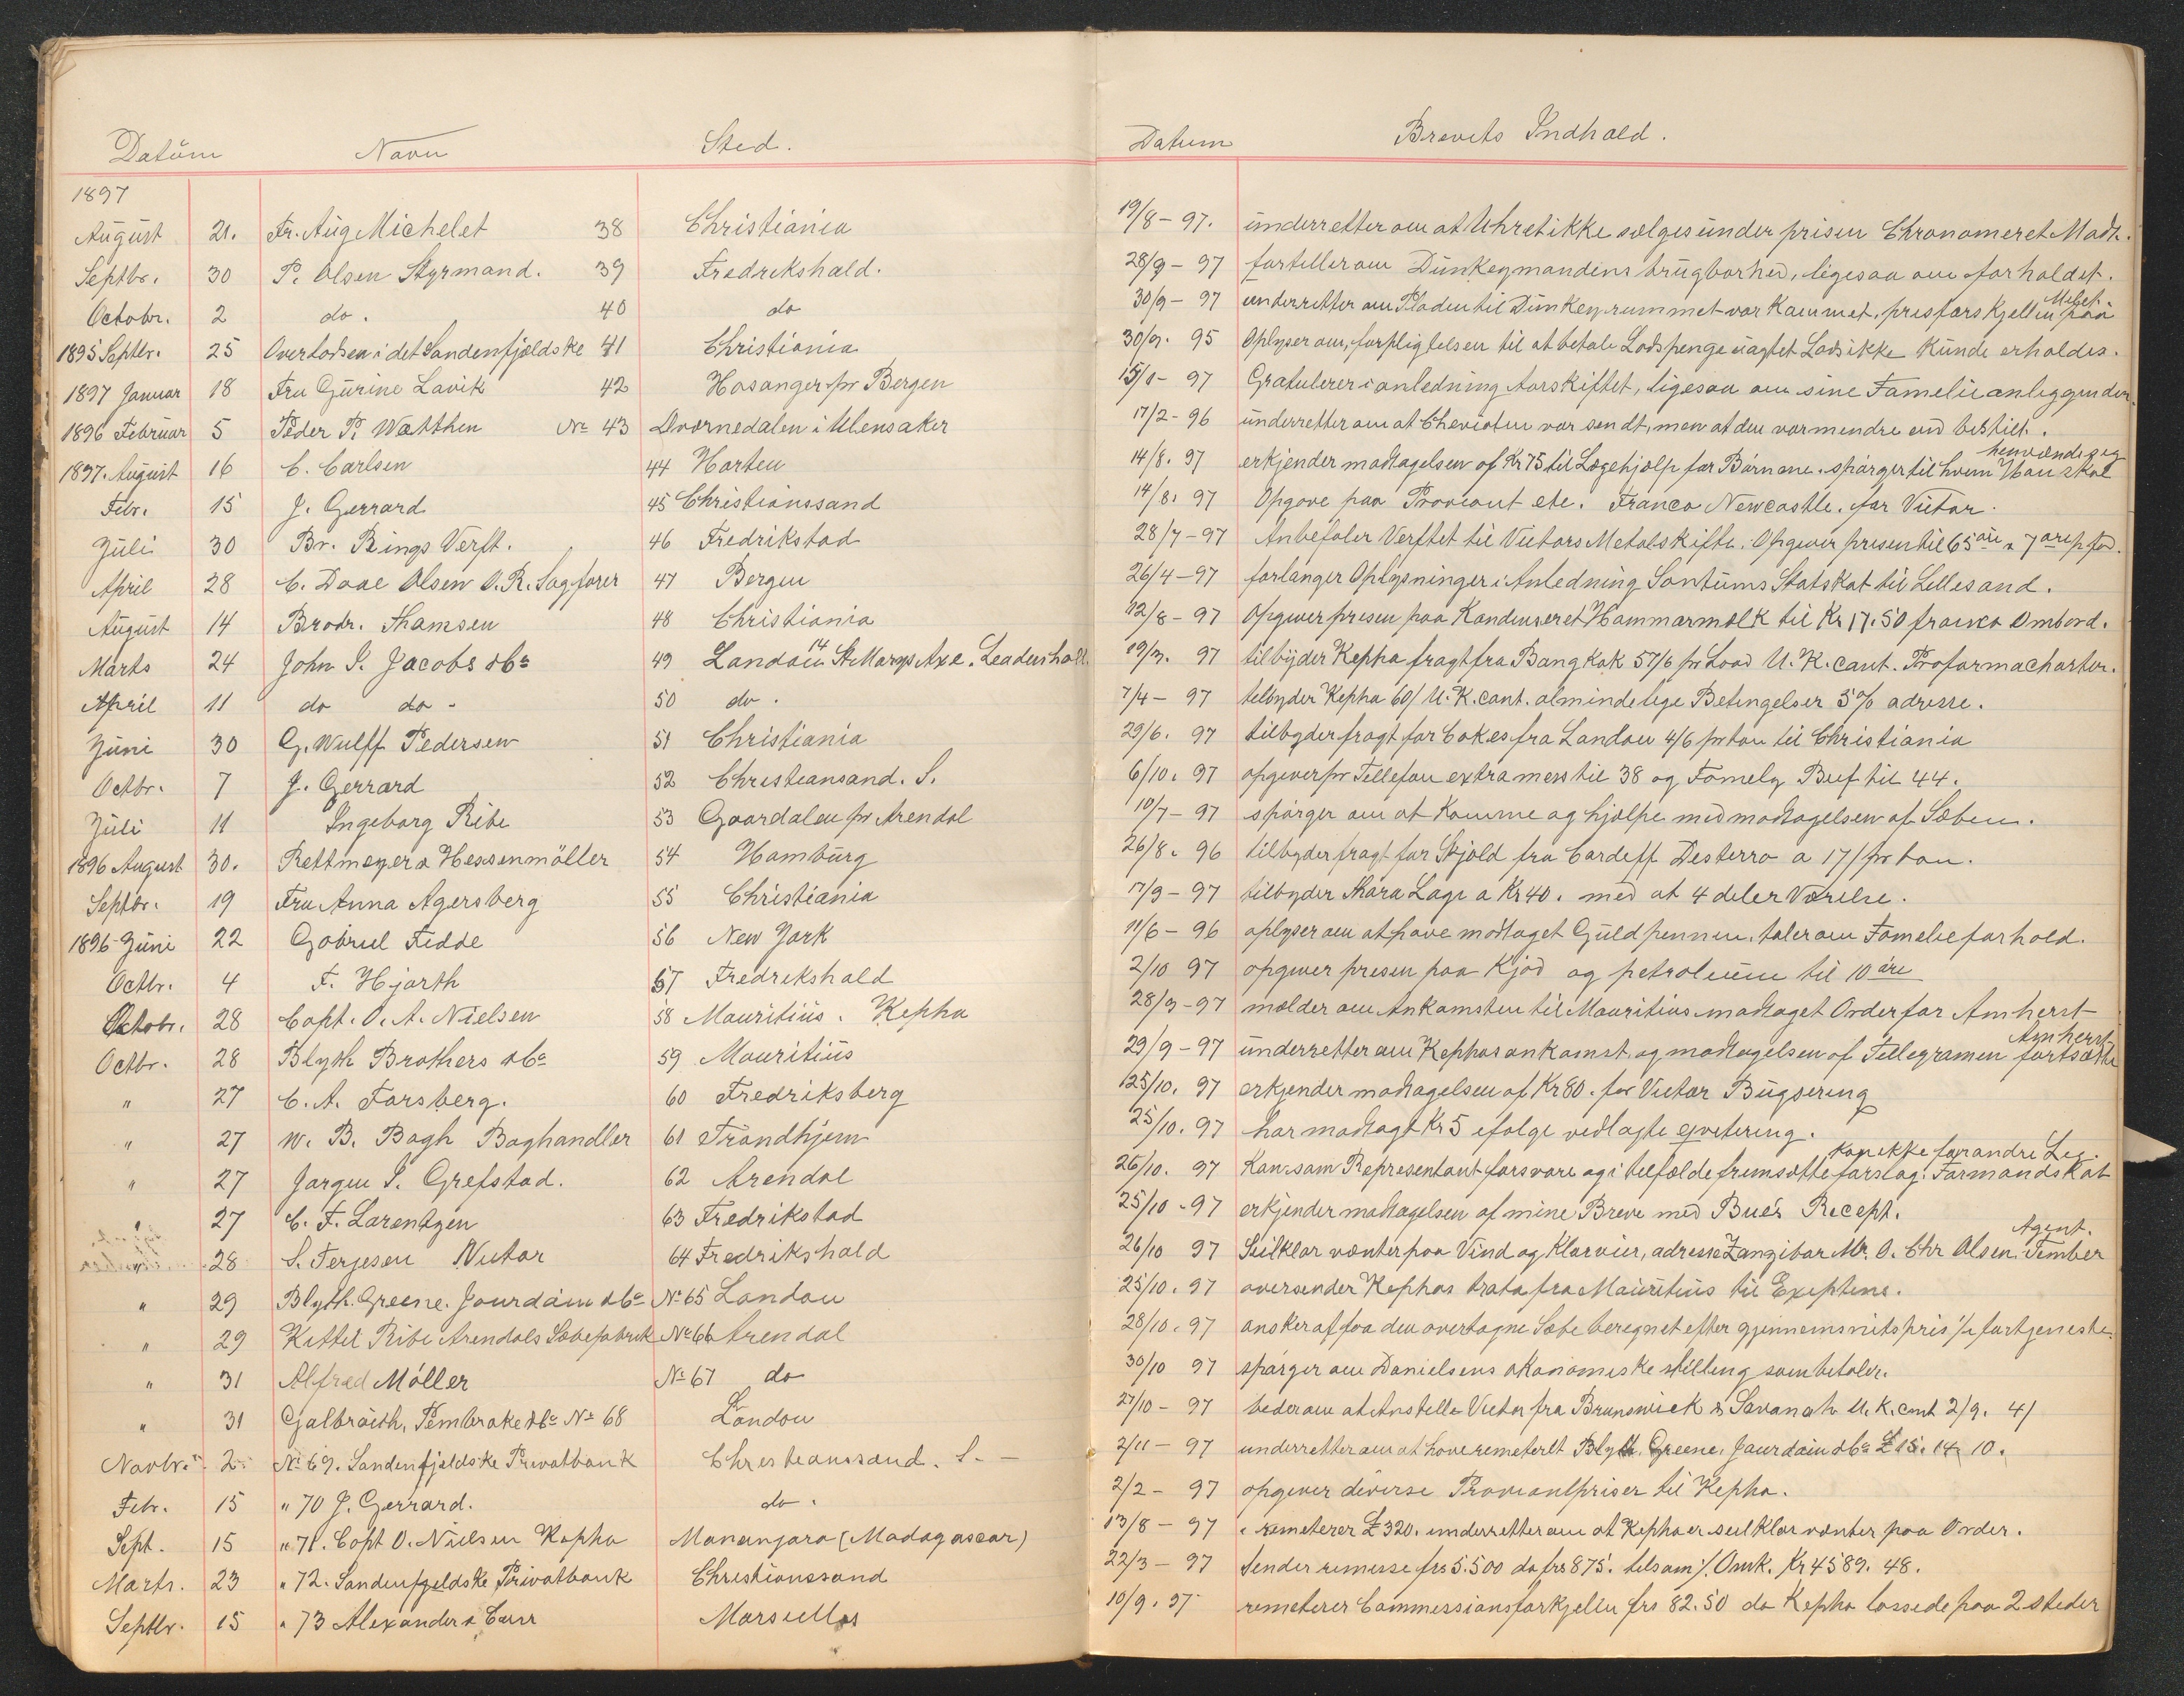 Datum Navn Sted.
1897
August 21. Fr. Aug Michelet 38 Christiania
Septbr. 30 P. Olsen Styrmand. 39 Fredrikshald.
Octobr. 2 do. 40 do
1895 Septbr. 25 Overlodsen i det Søndenfjeldske 41 Christiania
1897 Januar 18 Fru Gurine Lavik 42 Hosanger pr Bergen
1896 Februar 5 Peder P. Watthen No 43 Dvornedalen i Ulensaker
1897. August 16 C. Carlsen 44 Horten
Febr. 15 J. Gerrard 45 Christianssand
Juli 30 Br. Rings Verft. 46 Fredrikstad
April 28 C. Daae Olsen O.R. Sagfører 47 Bergen
August 14 Brødr. Thomsen 48 Christiania
Marts 24 John I. Jacobs & Co 49 London 14 St Marys Axe. Leadenhall
April 11 do do - 50 do.
Juni 30 G. Wulff Pedersen 51 Christiania
Octbr. 7 J. Gerrard 52 Christiansand. S.
Juli 11 Ingeborg Ribe 53 Gaardalen pr Arendal
1896 August 30. Rettmeyer & Hessenmöller 54 Hamburg
Septbr. 19 Fru Anna Agersberg 55 Christiania
1896 Juni 22 Gabriel Fedde 56 New York
Octbr. 4 F. Hjorth 57 Fredrikshald
Octobr. 28 Capt. O. A. Nielsen 58 Mauritius. Kepha
Octbr. 28 Blyth Brothers & Co 59 Mauritius
" 27 C. A. Forsberg. 60 Fredriksberg
" 27 W. B. Bogh Boghandler 61 Trondhjem
" 27 Jørgen I. Grefstad. 62 Arendal
" 27 C. F. Lorentzen 63 Fredrikstad
" 28 S. Terjesen Victor 64 Fredrikshald
" 29 Blyth. Greene. Jourdain & Co No 65 London
" 29 Kittil Ribe Arendals Sæbefabrik No 66 Arendal
" 31 Alfred Möller No 67 do
" 31 Galbraith, Pembroke & Co No 68 London
Novbr. 2 No 69. Søndenfjeldske Privatbank Christianssand. S. -
Febr. 15 " 70 J. Gerrard. do.
Sept. 15 " 71. Capt O. Nielsen Kepha Mananjara (Madagascar)
Marts. 23 " 72. Søndenfjeldske Privatbank Christianssand
Septbr. 15 " 73 Alexander & Carr Marseilles
Datum Brevets Indhold.
19/8 - 97. underretter om at Uhret ikke sælges under prisen Chronomeret Modt.
28/9 - 97 fortæller om Dunkeymandens brugborhed, ligesaa om forholdet.
30/9 - 97 underretter om Pladen til Dunkeyrummet var Kommet, prisforskjellen paa
30/9. 95 Oplyser om, forpligtelsen til at betale Lodspenge uagtet Lods ikke Kunde erholdes.
15/1 - 97 Gratulerer i anledning Aarskiftet, ligesaa om sine Familieanliggender.
17/2 - 96 underretter om at Chevioten var sendt, men at den var mindre end bestilt.
henvende sig
14/8. 97 erkjender modtagelsen af Kr 75 til Lægehjælp for Børnene. spørger til hvem Han skal
14/8. 97 Opgave paa Proviant etc. Franco Newcastle. for Victor.
28/7 - 97 Anbefaler Verftet til Victors Metalskifte. Opgiver prisen til 65 øre & 7 øre p fod.
26/4 - 97 forlanger Oplysninger i Anledning Sontums Statskat til Lillesand.
12/8 - 97 Opgiver prisen paa Kondenseret Hammarmelk til Kr 17.50 franco Ombord.
19/3. 97 tilbyder Kepha fragt fra Bangkok 57/6 pr Load U.K. cont. Proformacharter.
7/4 - 97 tilbyder Kepha 60/ U.K. cont. almindelige Betingelser 5% adresse.
29/6. 97 tilbyder fragt for Cokes fra London 4/6 pr ton til Christiania
6/10. 97 opgiver pr Tellefon extra mess til 38 og Famely Beef til 44.
10/7 - 97 spørger om at Komme og hjælpe med modtagelsen af Sæben.
26/8. 96 tilbyder fragt for Skjold fra Cardiff Desterro a 17/ pr ton.
17/9 - 97 tilbyder Thora Logi a Kr 40. med at 4 deler Værelse.
11/6 - 96 oplyser om at have modtaget Guldpennen. taler om Familieforhold.
2/10 97 opgiver prisen paa Kjød og petroleum til 10 øre
28/9 - 97 melder om Ankomsten til Mauritius modtaget Order for Amherst
Amherst
29/9 - 97 underretter om Kephas ankomst og modtagelsen af Tellegramen fortsætte
25/10. 97 erkjender modtagelsen af Kr 80. for Victor Bugsering
25/10. 97 har modtagt Kr 5 ifølge vedlagte qvitering.
kan ikke forandre Lig.
26/10. 97 Kan som Representant forsvare og i tilfælde fremsætte forslag. Formandskab
25/10 - 97 erkjender modtagelsen af mine Breve med Bue's Recept.
Agent.
26/10 97 Seilklar venter paa Vind og Klarveir, adresse Zanzibar Mr. O. Chr Olsen. Timber
25/10. 97 oversender Kephas trata fra Mauritius til Exeptene.
28/10. 97 ønsker at faa den overtagne Sæbe beregnet efter gjennemsnitspris % fortjeneste.
30/10 97 spørger om Danielsens økonomiske stilling som betaler.
27/10 - 97 beder om at Anstille Victor fra Brunswick & Savanah U.K. cont 2/9. 4/
2/11 - 97 underretter om at have remeterlt Blyth. Greene, Jaurdain & Co £ 15. 14. 10.
2/2 - 97 opgiver diverse Proviantpriser til Kepha.
13/8 - 97 remeterer £ 320. underretter om at Kepha er seilklar venter paa Order.
22/3 - 97 Sender remesse frs 5.500 do frs 875. tilsam % Omk. Kr 4589. 48.
10/9. 97 remeterer Commessionsforkjellen frs 82.50 da Kepha lossede paa 2 steder